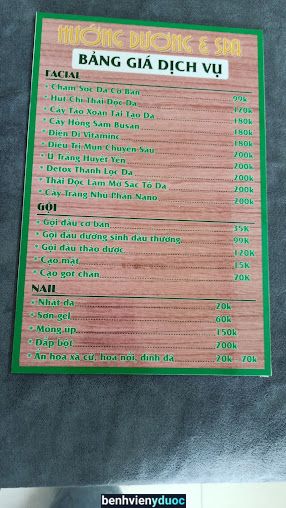 HƯỚNG DƯƠNG & SPA
BẢNG GIÁ DỊCH VỤ
FACIAL
• Chăm Sóc Da Cơ Bản 99k
• Hút Chì Thải Độc Da 120k
• Cấy Tảo Xoắn Tái Tạo Da 180k
• Cấy Hồng Sâm Busan 180k
• Điện Di Vitaminc 180k
• Điều Trị Mụn Chuyên Sâu 200k
• Ủ Trắng Huyết Yến 200k
• Detox Thanh Lọc Da 200k
• Thải Độc Làm Mờ Sắc Tố Da 200k
• Cấy Trắng Nhũ Phấn Nano 200k
GỘI
• Gội đầu cơ bản 35K
• Gội đầu dưỡng sinh dầu thường 99K
• Gội đầu thảo dược 120K
• Cạo mặt 15K
• Cạo gót chân 20K
NAIL
• Nhặt da 20k
• Sơn gel 60k
• Móng úp 150k
• Đắp bột 200k
• Ẩn hoa xà cừ, hoa nổi, đính đá 20k - 70k
benhvienyduoc